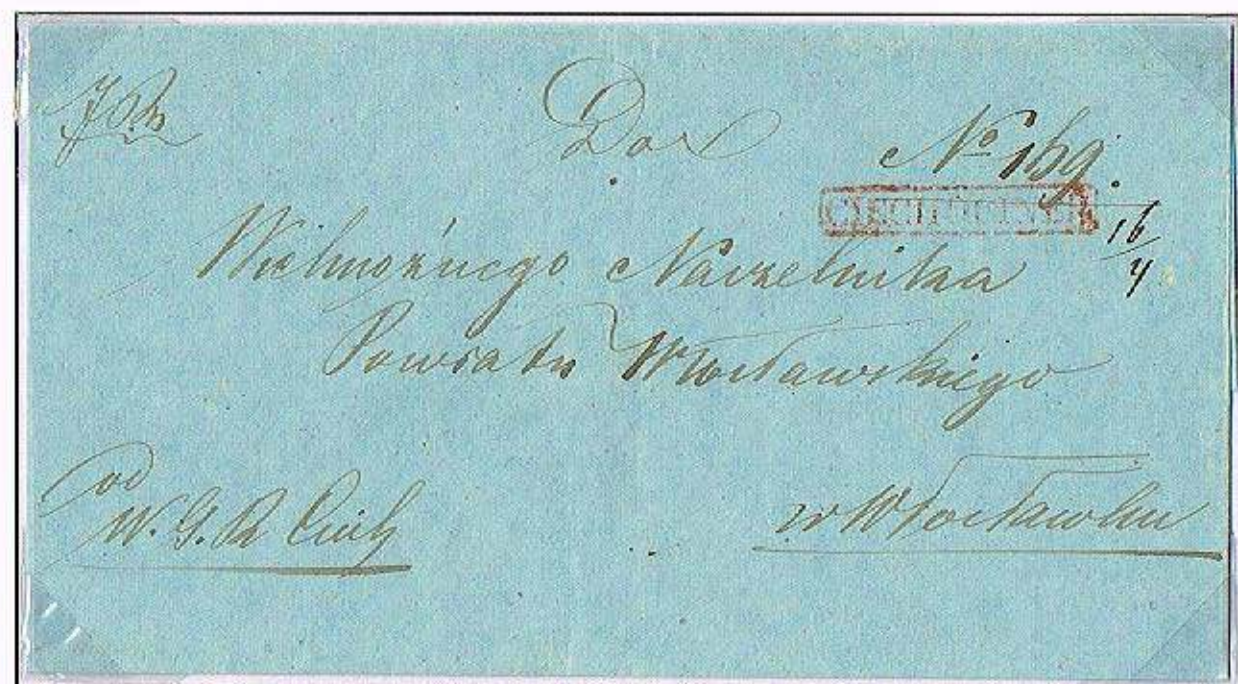 Do
No 169.
CIECHOCINEK
16/4
Wielmożnego Naczelnika
Powiatu Włocławskiego
od
W. G. R. Ciech
w Włocławku